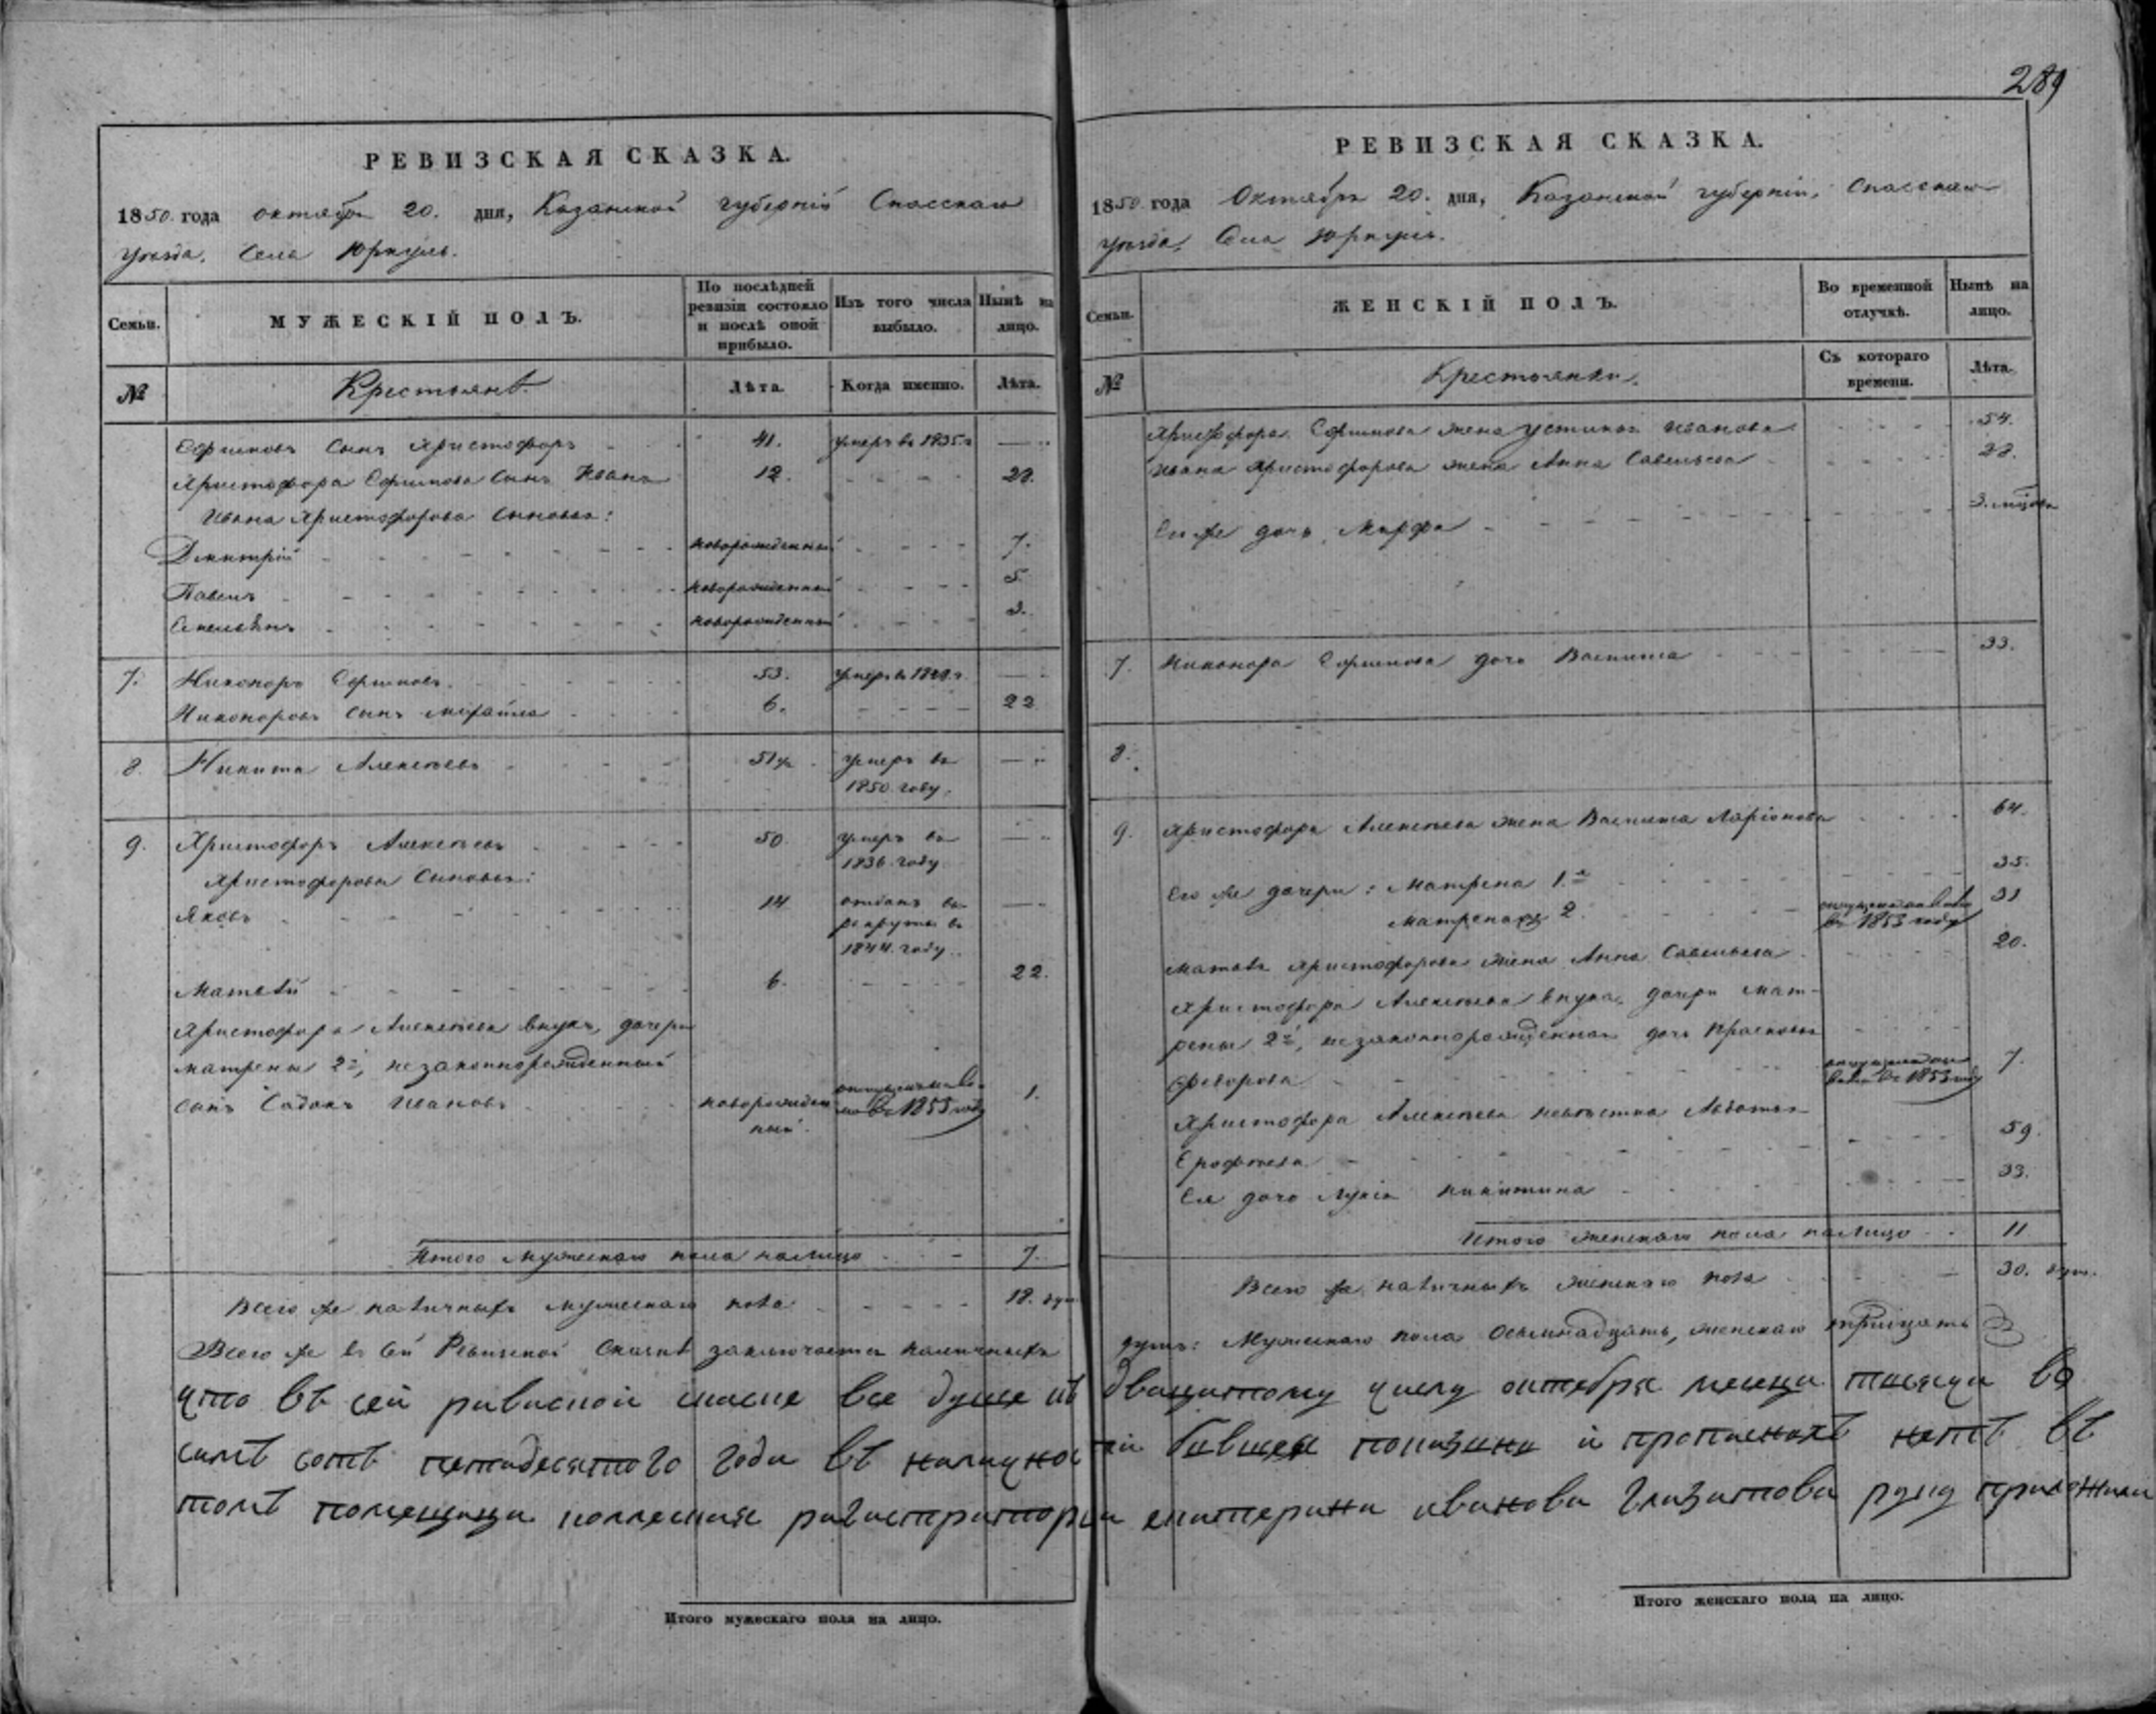 289
РЕВИЗСКАЯ СКАЗКА.
1850 года октября 20. дня, Казанской губерніи Спасскаго
уѣзда, села Юркуль.
Семьи.
МУЖЕСКІЙ ПОЛЪ.
По послѣдней ревизіи состояло и послѣ оной прибыло.
Изъ того числа выбыло.
Нынѣ на лицо.
№
Крестьянѣ.
Лѣта.
Когда именно.
Лѣта.
Ефимовъ сынъ Христофоръ 41. умеръ въ 1835 г —
Христофора Ефимова сынъ Иванъ 12. 28.
Ивана Христофорова сыновья:
Димитрій новорожденный 7.
Павелъ новорожденный 5
новорожденный 3.
7. Никоноръ Ефимовъ 53. умеръ въ г. —
Никоноровъ сынъ Михайла 6. 22
8. Никита Алексѣевъ 51 умеръ въ —
1850 году.
9. Христофоръ Алексѣевъ 50. умеръ въ —
1836 году
Христофоровы сыновья:
Яковъ 14 отданъ въ —
рекруты въ
1844 году.
Матвѣй 6. 22.
Христофора Алексѣева внукъ, дочери
Матрены 2й, незаконнорожденный
сынъ Ивановъ новорожден 1.
ный въ 1853 году
Итого мужескаго пола налицо 7.
Всего же наличныхъ мужескаго пола 18. душ
Всего же въ сей Ревизской сказкѣ заключается наличныхъ
РЕВИЗСКАЯ СКАЗКА.
1850 года Октября 20. дня, Казанской губерніи, Спасскаго
уѣзда, села Юркуль.
Семьи.
ЖЕНСКІЙ ПОЛЪ.
Во временной отлучкѣ.
Нынѣ на лицо.
№
Крестьянки.
Съ котораго времени.
Лѣта.
Христофора Ефимова жена Устинья Иванова 54.
Ивана Христофорова жена Анна Савельева 28.
Ея же дочь Марфа 3.
7. Никонора Ефимова дочь Василиса 33.
8.
9. Христофора Алексѣева жена Василиса Ларіонова 64.
Его же дочери: Матрена 1я 35.
Матрена 2 въ 1853 году 31
Матвѣя Христофорова жена Анна Савельева 20.
Христофора Алексѣева внука, дочери Мат-
рены 2й, незаконнорожденная дочь Прасковья
Федорова в 1853 году 7.
Христофора Алексѣева невѣстка Авдотья
Ерофѣева 59.
Ея дочь Лукія Никитина 33.
Итого женскаго пола налицо 11
Всего же наличныхъ женскаго пола 30. душ.
душъ: Мужескаго пола осьмнадцать, женскаго тритцать
что вь сей ревиской скаске все душе кь двацатому числу октебря месеца тысеча во
семь соть петидесятого года вь наличности бывшея показаны и прописныхь неть вь
томь помещица колеския регистраторша екатерина иванова Глазатова руку приложила
Итого мужескаго пола на лицо.
Итого женскаго пола на лицо.